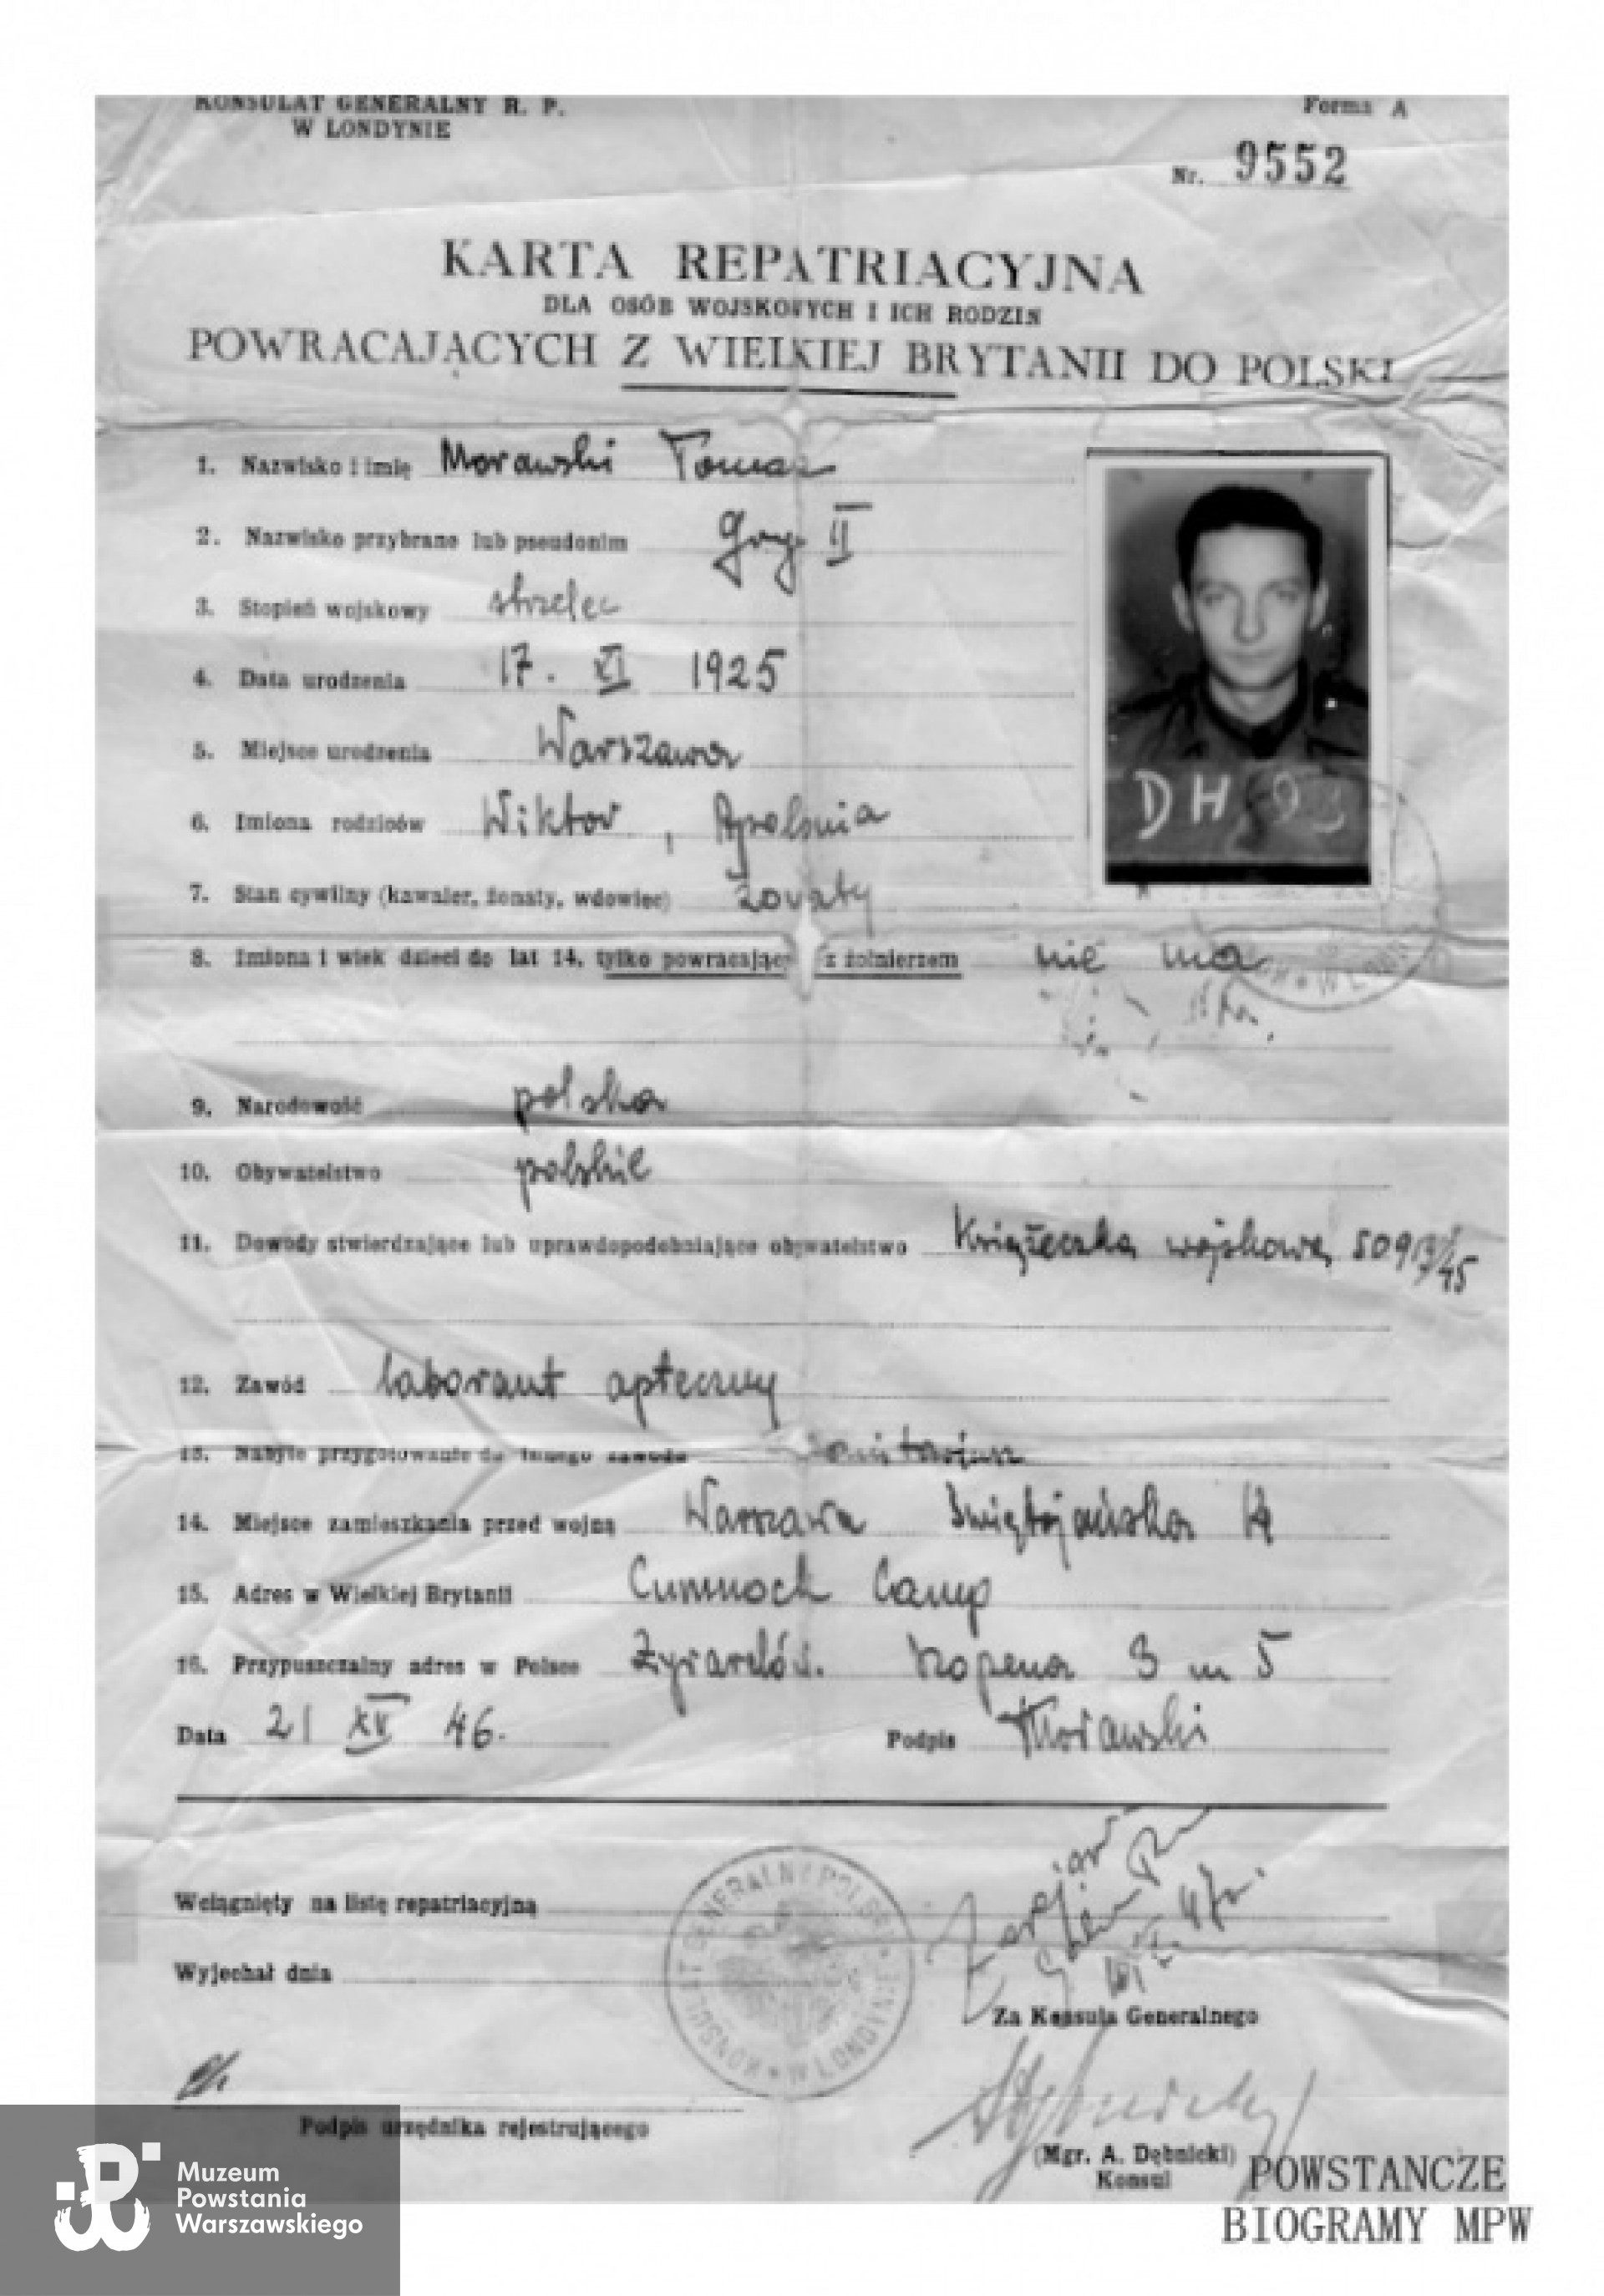 KONSULAT GENERALNY R. P.
W LONDYNIE
Forma A
Nr. 9552
KARTA REPATRIACYJNA
DLA OSÓB WOJSKOWYCH I ICH RODZIN
POWRACAJĄCYCH Z WIELKIEJ BRYTANII DO POLSKI
1. Nazwisko i imię Morawski Tomasz
2. Nazwisko przybrane lub pseudonim Gryf II
3. Stopień wojskowy strzelec
4. Data urodzenia 17. XI 1925
5. Miejsce urodzenia Warszawa
6. Imiona rodziców Wiktor, Apolonia
7. Stan cywilny (kawaler, żonaty, wdowiec) żonaty
8. Imiona i wiek dzieci do lat 14, tylko powracając z żołnierzem nie ma
9. Narodowość polska
10. Obywatelstwo polskie
11. Dowody stwierdzające lub uprawdopodobniające obywatelstwo Książeczka wojskowa 509
12. Zawód laborant apteczny
13. Nabyte przygotowanie do innego zawodu
14. Miejsce zamieszkania przed wojną Warszawa Świętojańska
15. Adres w Wielkiej Brytanii Cumnock Camp
16. Przypuszczalny adres w Polsce Żyrardów. Szopena 3 m 5
Data 21 XV 46. Podpis TMorawski
DH 93
Wciągnięty na listę repatriacyjną
Wyjechał dnia
KONSULAT GENERALNY POLSKI W LONDYNIE
Za Konsula Generalnego
Podpis urzędnika rejestrującego
(Mgr. A. Dębnicki)
Konsul
Muzeum
Powstania
Warszawskiego
POWSTAŃCZE
BIOGRAMY MPW